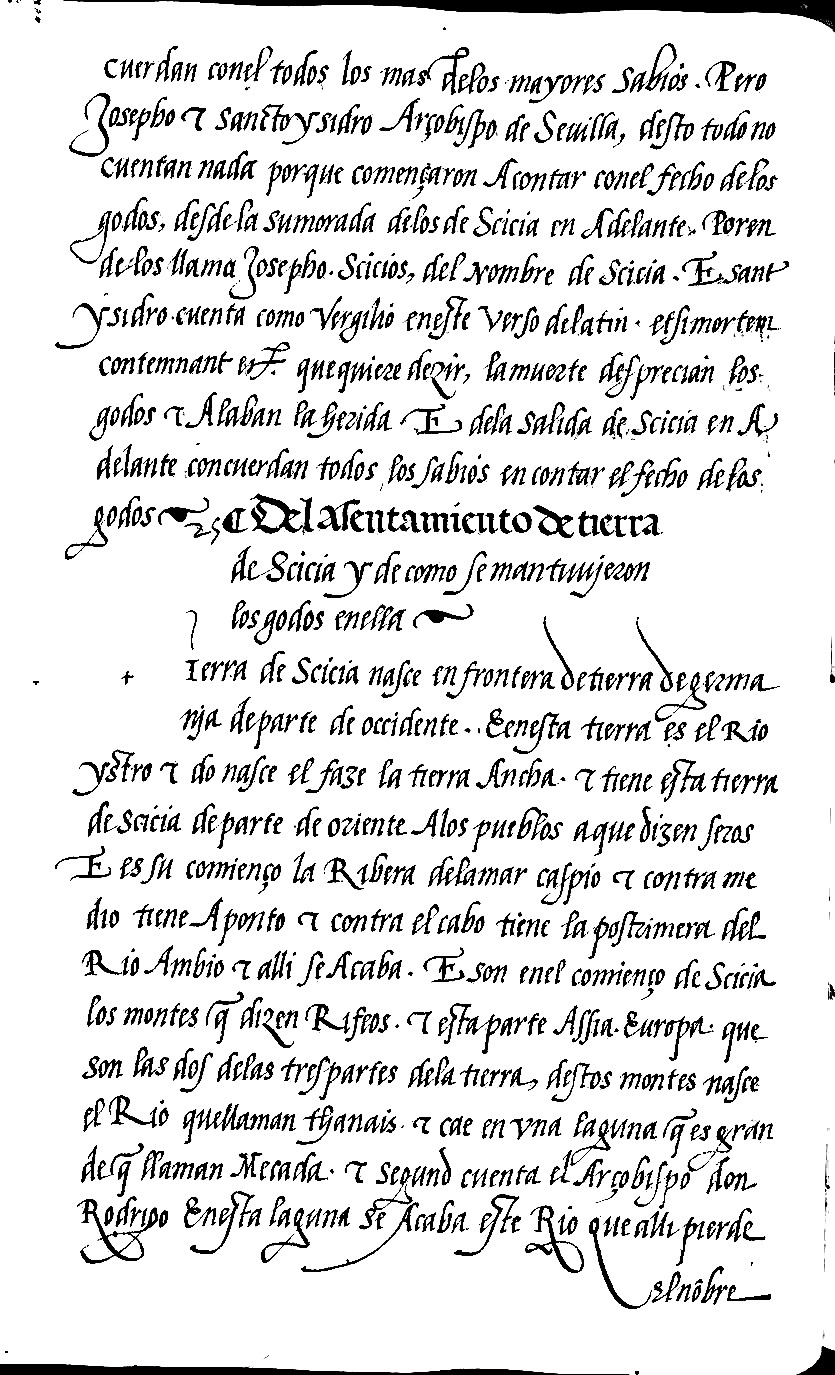 cuerdan conel todos los mas delos mayores sabios. Pero
Josepho τ sancto ysidro Arçobispo de Sevilla, desto todo no
cuentan nada porque començaron Acontar conel fecho delos
godos, desde la sumorada delos de Scicia en Adelante. Poren
de los llama Josepho. Scicios, del Nombre de Scicia. E sant
ysidro cuenta como Vergilio eneste verso de latin. etsi mortem
contemnant que quiere dezir, la muerte desprecian los
godos τ Alaban la herida E dela salida de Scicia en A
delante concuerdan todos los sabios en contar el fecho de los
godos Del Asentamiento de tierra
de Scicia y de como se mantuvijeron
los godos enella
Ierra de Scicia nasce en frontera de tierra de germa
nja de parte de occidente. E enesta tierra es el Rio
ystro τ do nasce el faze la tierra Ancha. τ tiene esta tierra
de Scicia de parte de oriente Alos pueblos a que dizen seros
E es su comienço la Ribera delamar caspio τ contra me
dio tiene Aponto τ contra el cabo tiene la postrimera del
Rio Ambio τ alli se Acaba. E son enel comienço de Scicia
los montes q̃ dizen Rifeos. τ esta parte Assia. Europa. que
son las dos delas tres partes dela tierra, destos montes nasce
el Rio quellaman thanais. τ cae en vna laguna q̃ es gran
de q̃ llaman Mecada. τ segund cuenta el Arçobispo don
Rodrigo Enesta laguna se Acaba este Rio que alli pierde
el nõbre